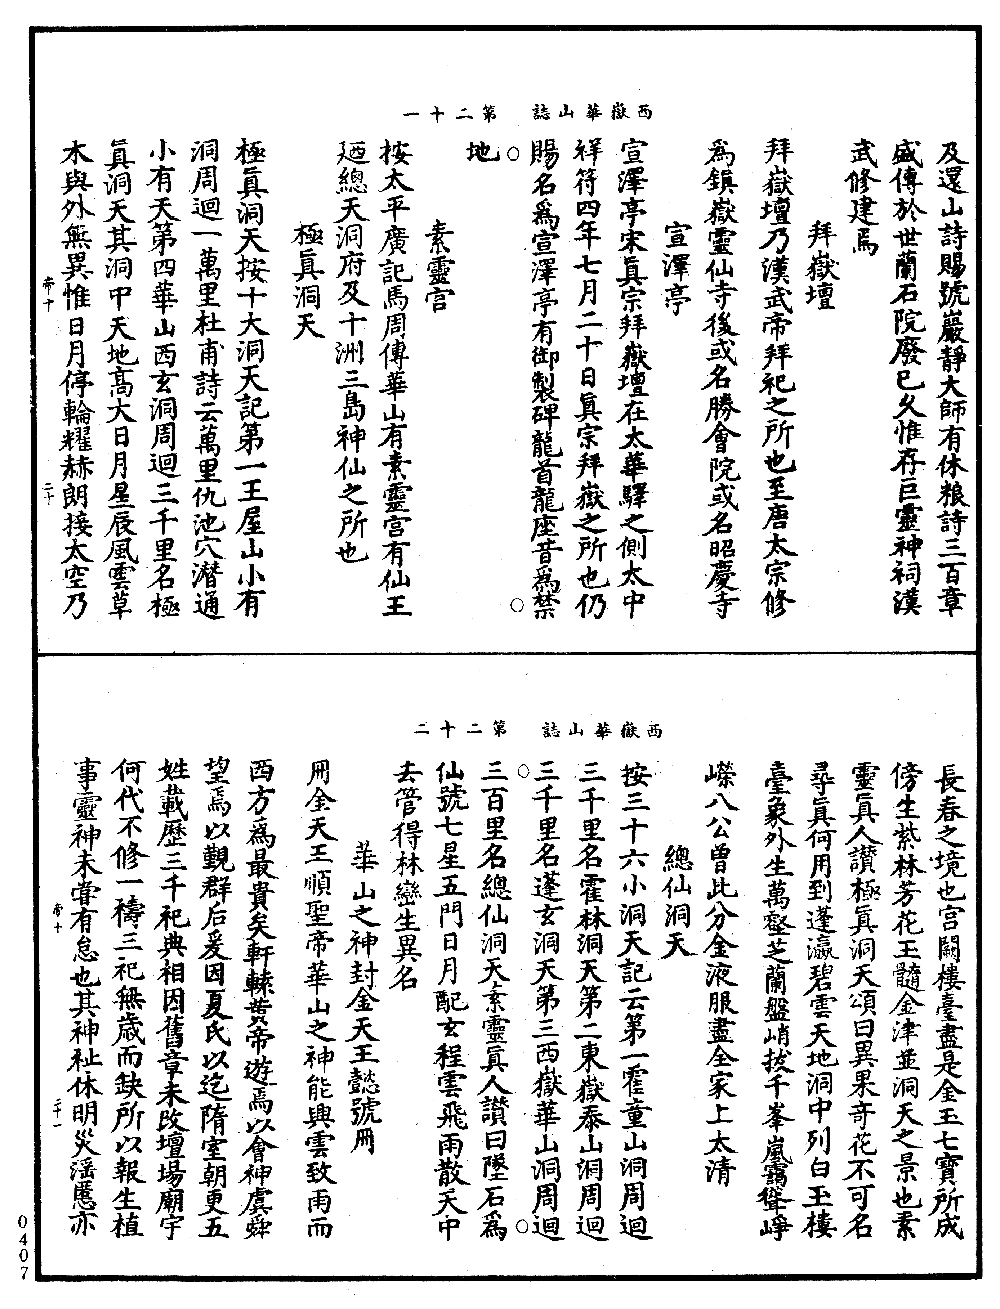 西嶽華山誌　第二十一
及還山詩賜號巖靜大師有休粮詩三百章
盛傳於世蘭石院廢已久惟存巨靈神祠漢
武修建焉
拜嶽壇
拜嶽壇乃漢武帝拜祀之所也至唐太宗修
為鎮嶽靈仙寺後或名勝會院或名昭慶寺
宣澤亭
宣澤亭宋真宗拜嶽壇在太華驛之側太中
祥符四年七月二十日真宗拜嶽之所也仍
賜名為宣澤亭有御製碑龍首龍座昔為禁
地
素靈宮
按太平廣記馬周傳華山有素靈宮有仙王
廼總天洞府及十洲三島神仙之所也
極真洞天
極真洞天按十大洞天記第一王屋山小有
洞周迴一萬里杜甫詩云萬里仇池穴潛通
小有天第四華山西玄洞周迴三千里名極
真洞天其洞中天地高大日月星辰風雲草
木與外無異惟日月停輪耀赫朗接太空乃
帝十　二十
西嶽華山誌　第二十二
長春之境也宮闕樓臺盡是金玉七寶所成
傍生紫林芳花玉髓金津並洞天之景也素
靈真人讚極真洞天頌曰異果奇花不可名
尋真何用到蓬瀛碧雲天地洞中列白玉樓
臺象外生萬壑芝蘭盤峭拔千峯嵐靄聳崢
嶸八公曾此分金液服盡全家上太清
總仙洞天
按三十六小洞天記云第一霍童山洞周迴
三千里名霍林洞天第二東嶽泰山洞周迴
三千里名蓬玄洞天第三西嶽華山洞周迴
三百里名總仙洞天素靈真人讚曰墜石為
仙號七星五門日月配玄程雲飛雨散天中
去管得林巒生異名
華山之神封金天王懿號冊
冊金天王順聖帝華山之神能興雲致雨而
西方為最貴矣軒轅黃帝遊焉以會神虞舜
望焉以覲群后爰因夏氏以迄隋室朝更五
姓載歷三千祀典相因舊章未改壇場廟宇
何代不修一禱三祀無歲而缺所以報生植
事靈神未嘗有怠也其神祉休明災滛慝亦
帝十　二十一
0407